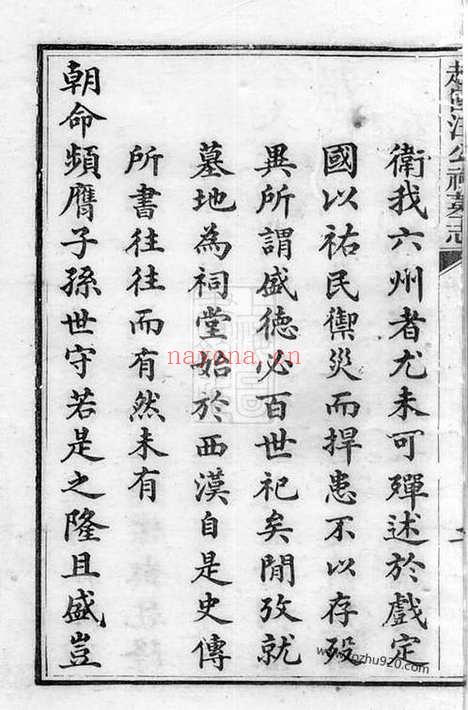 越國汪公祠墓志
衛我六州者尤未可殫述於戲定
國以祐民禦災而捍患不以存殁
異所謂盛德必百世祀矣閒攷就
墓地為祠堂始於西漢自是史傳
所書往往而有然未有
朝命頻膺子孫世守若是之隆且盛豈
naxena.cn
pozhu920.com